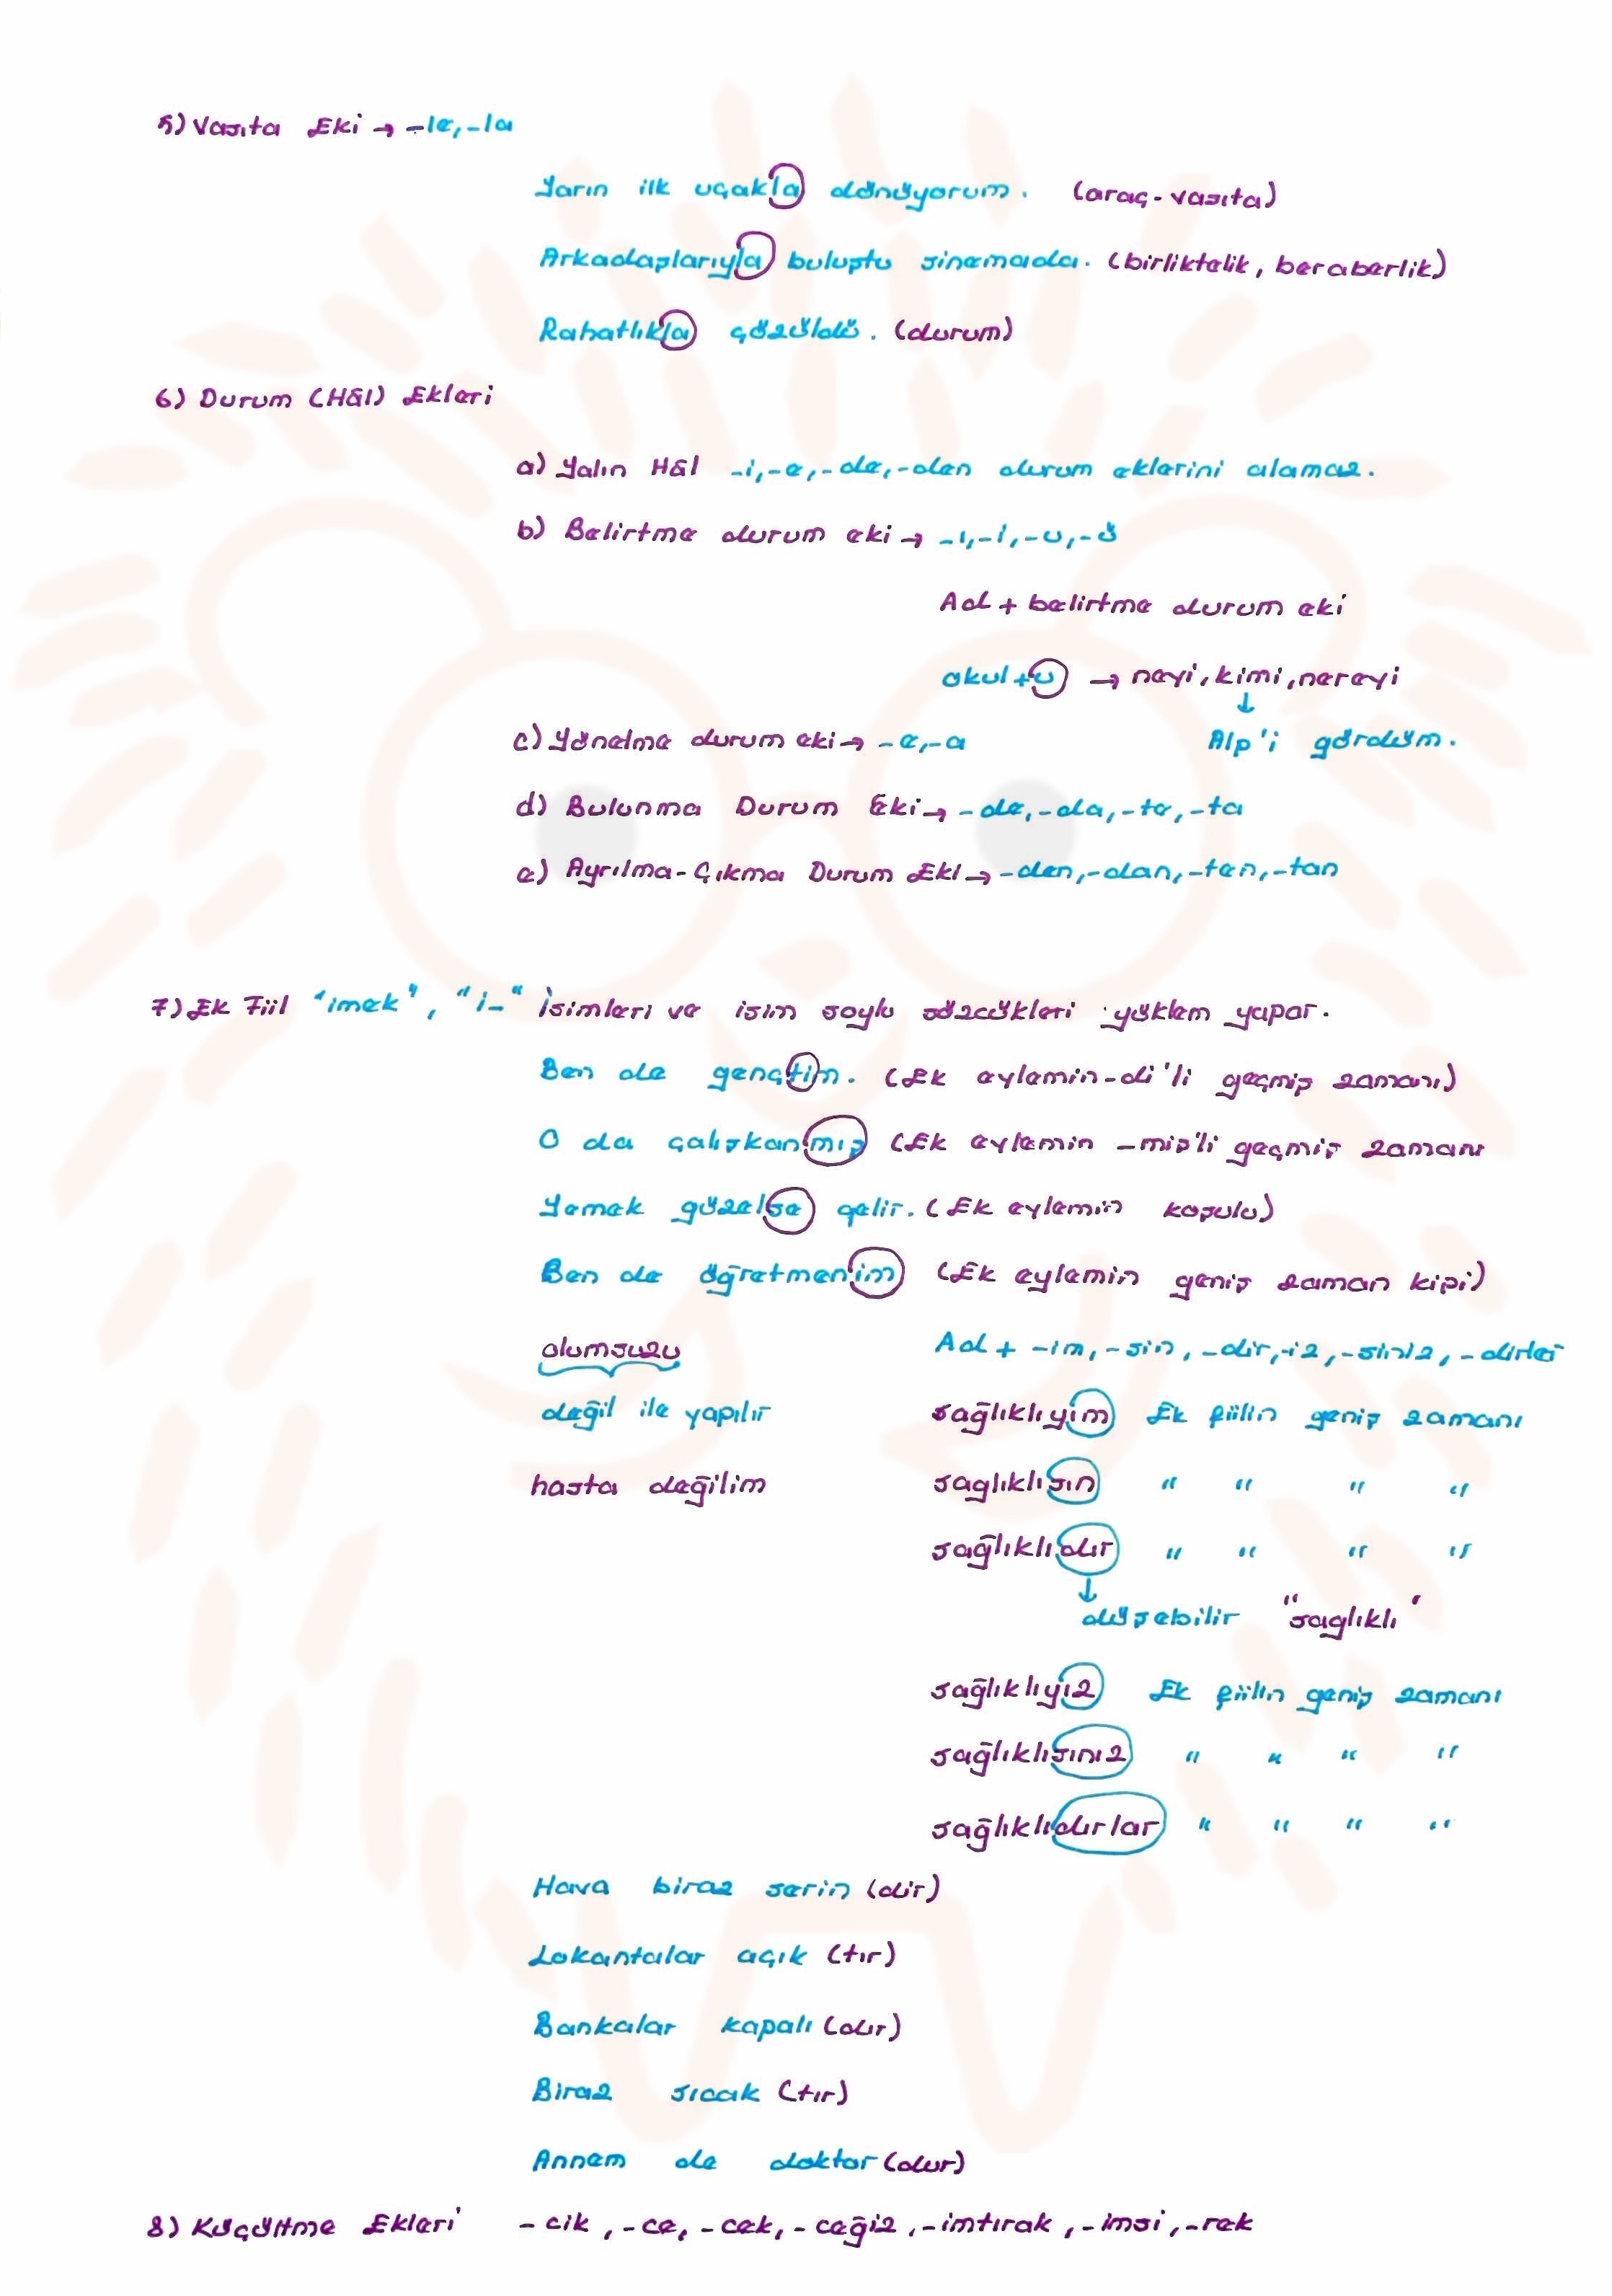 5) Vasıta Eki → -le, -la
Yarın ilk uçakla dönüyorum. (araç-vasıta)
Arkadaşlarıyla buluştu sinemada. (birliktelik, beraberlik)
Rahatlıkla çözüldü. (durum)
6) Durum (Hâl) Ekleri
a) Yalın Hâl -i, -e, -de, -den durum eklerini alamaz.
b) Belirtme durum eki → -ı, -i, -u, -ü
Ad + belirtme durum eki
okul + u → neyi, kimi, nereyi
↓
c) Yönelme durum eki → -e, -a Alp'i gördüm.
d) Bulunma Durum Eki → -de, -da, -te, -ta
e) Ayrılma-Çıkma Durum Eki → -den, -dan, -ten, -tan
7) Ek Fiil "imek", "i-" İsimleri ve isim soylu sözcükleri yüklem yapar.
Ben de gençtim. (Ek eylemin -di'li geçmiş zamanı)
O da çalışkanmış (Ek eylemin -miş'li geçmiş zamanı
Yemek güzelse gelir. (Ek eylemin koşulu)
Ben de öğretmenim (Ek eylemin geniş zaman kipi)
olumsuzu Ad + -im, -sin, -dir, -iz, -siniz, -dirler
değil ile yapılır sağlıklıyim Ek fiilin geniş zamanı
hasta değilim saglıklısın " " " "
sağlıklıdır " " " "
↓
düşebilir "saglıklı"
sağlıklıyız Ek fiilin geniş zamanı
sağlıklısınız " " " "
sağlıklıdırlar " " " "
Hava biraz serin (dir)
Lokantalar açık (tır)
Bankalar kapalı (dır)
Biraz sıcak (tır)
Annem de doktor (dur)
8) Küçültme Ekleri -cik, -ce, -cek, -ceğiz, -imtırak, -imsi, -rek